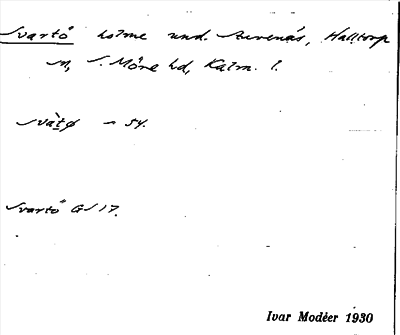 Svartö holme und. Arvenäs, Halltorp
sn, S. Möre hd, Kalm. l.
svàtø – 54.
Svartö GS 17.
Ivar Modéer 1930